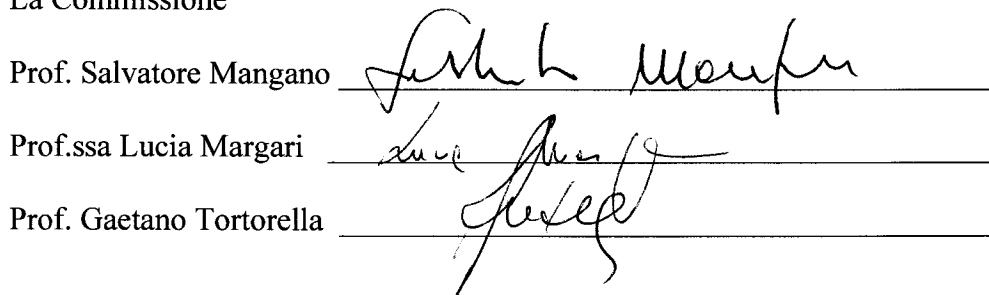 La Commissione
Prof. Salvatore Mangano
Prof.ssa Lucia Margari
Prof. Gaetano Tortorella